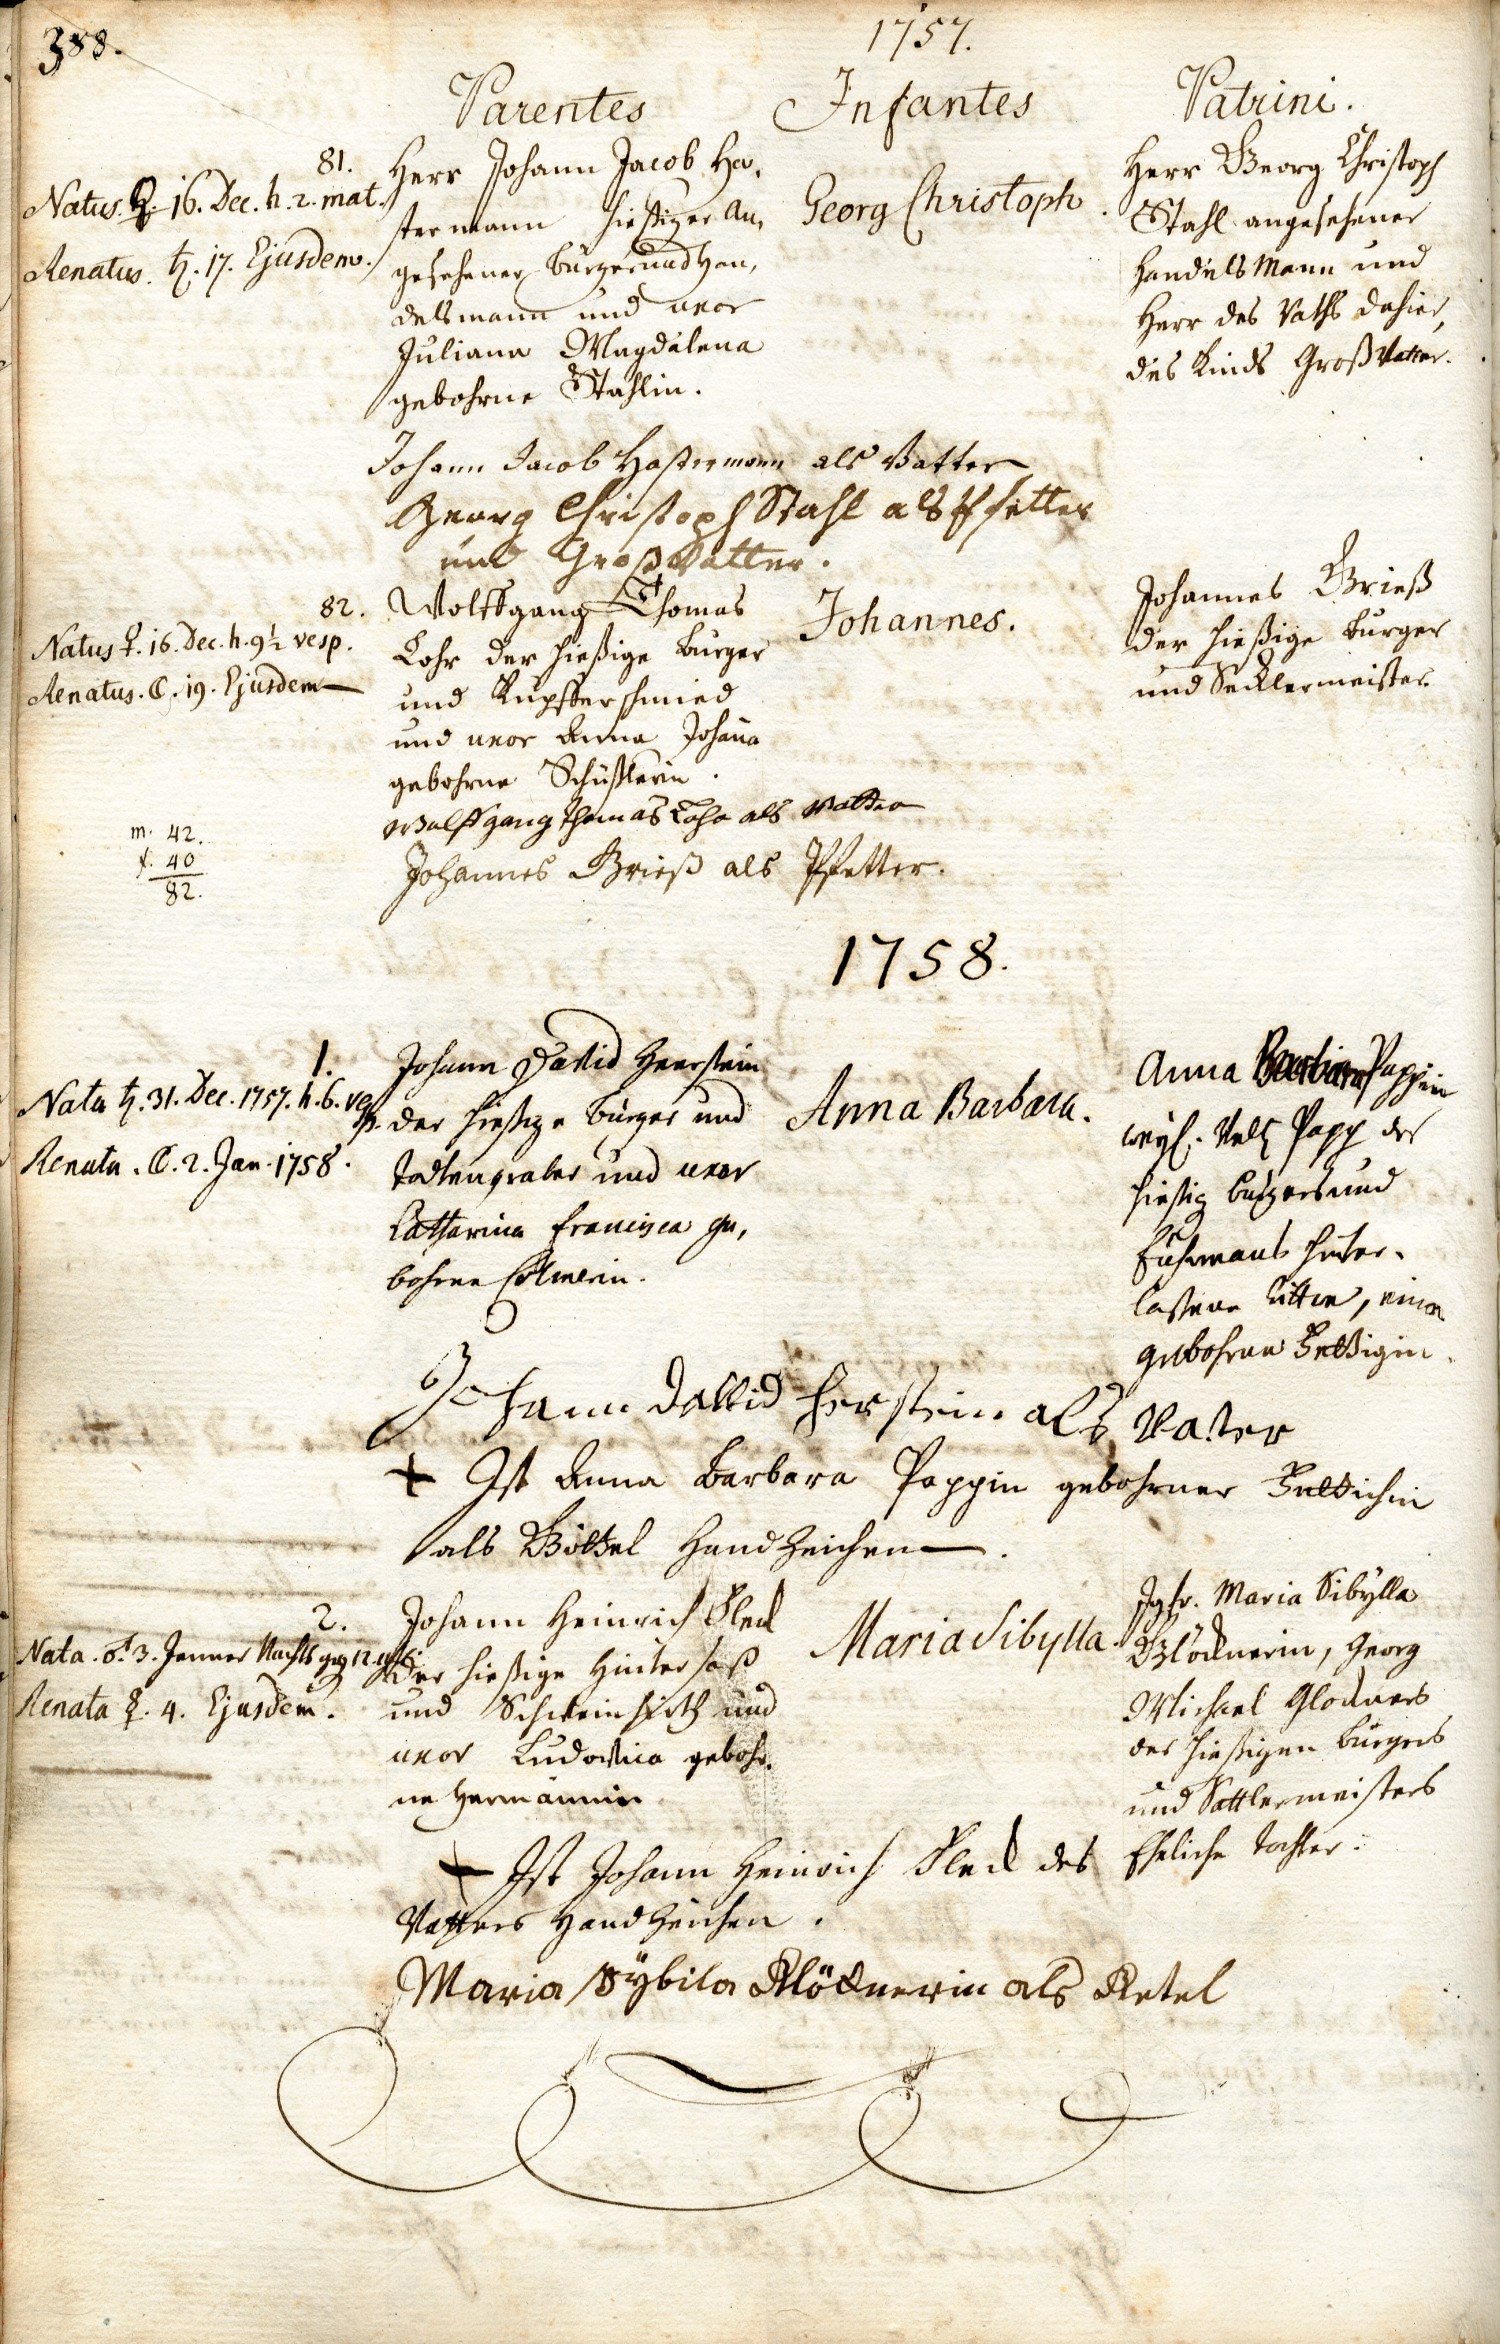 388.
1757.
Parentes Infantes Patrini.
81.
Natus ☿. 16. Dec. h. 2. mat.
Renatus. ♄. 17. Ejusdem.
Herr Johann Jacob Ha,
stermann hießiger an,
gesehener burger und han,
delsmann und uxor
Juliana Magdalena
gebohrne Stahlin.
Georg Christoph.
Herr Georg Christoph
Stahl angesehener
handelsMann und
Herr des Raths dahier,
des Kinds Großvatter.
Johann Jacob Hastermann als Vatter
Georg Christoph Stahl als Pfetter
und Großvatter.
82.
Natus ♀. 16. Dec. h. 9½ vesp.
Renatus. ☾. 19. Ejusdem
Wolffgang Thomas
Lohr der hießige burger
und Kupfferschmied
und uxor Anna Johana
gebohrne Schüßlerin.
Johannes.
Johannes Grieß
der hießige burger
und Secklermeister
Wolffgang Thomas Lohr als Vatter
Johannes Grieß als Pfetter.
m. 42.
f. 40
82.
1758.
1.
Nata ♄. 31. Dec. 1757. h. 6. vesp.
Renata. ☾. 2. Jan. 1758.
Johann David Heerstein
der hießige burger und
todtengraber und uxor
Catharina Francisca ge,
bohrne Colmerin.
Anna Barbara.
Anna Barbara Pappin
weyl. Velt Papp des
hießig burgers und
Fuhrmans hinter,
laßene Wittwe, eine
gebohrne Fettigin.
Johann David Herstein als Vatter
+ Ist Anna Barbara Pappin gebohrner Fettichin
als Göttel Handzeichen.
2.
Nata. ♂. 3. Jenner Nachts geg 12. uhr
Renata ☿. 4. Ejusdem.
Johann Heinrich Fleck
der hießige Hintersaß
und Schweinhirth und
uxor Ludovica gebohr,
ne Hermännin
Maria Sibylla.
Jgfr. Maria Sibylla
Glöcknerin, Georg
Michael Glockners
des hießigen burgers
und Sattlermeisters
Eheliche tochter.
+ Ist Johann Heinrich Fleck des
Vatters Handzeichen.
Maria Sÿbila Klöcknerin als Getel